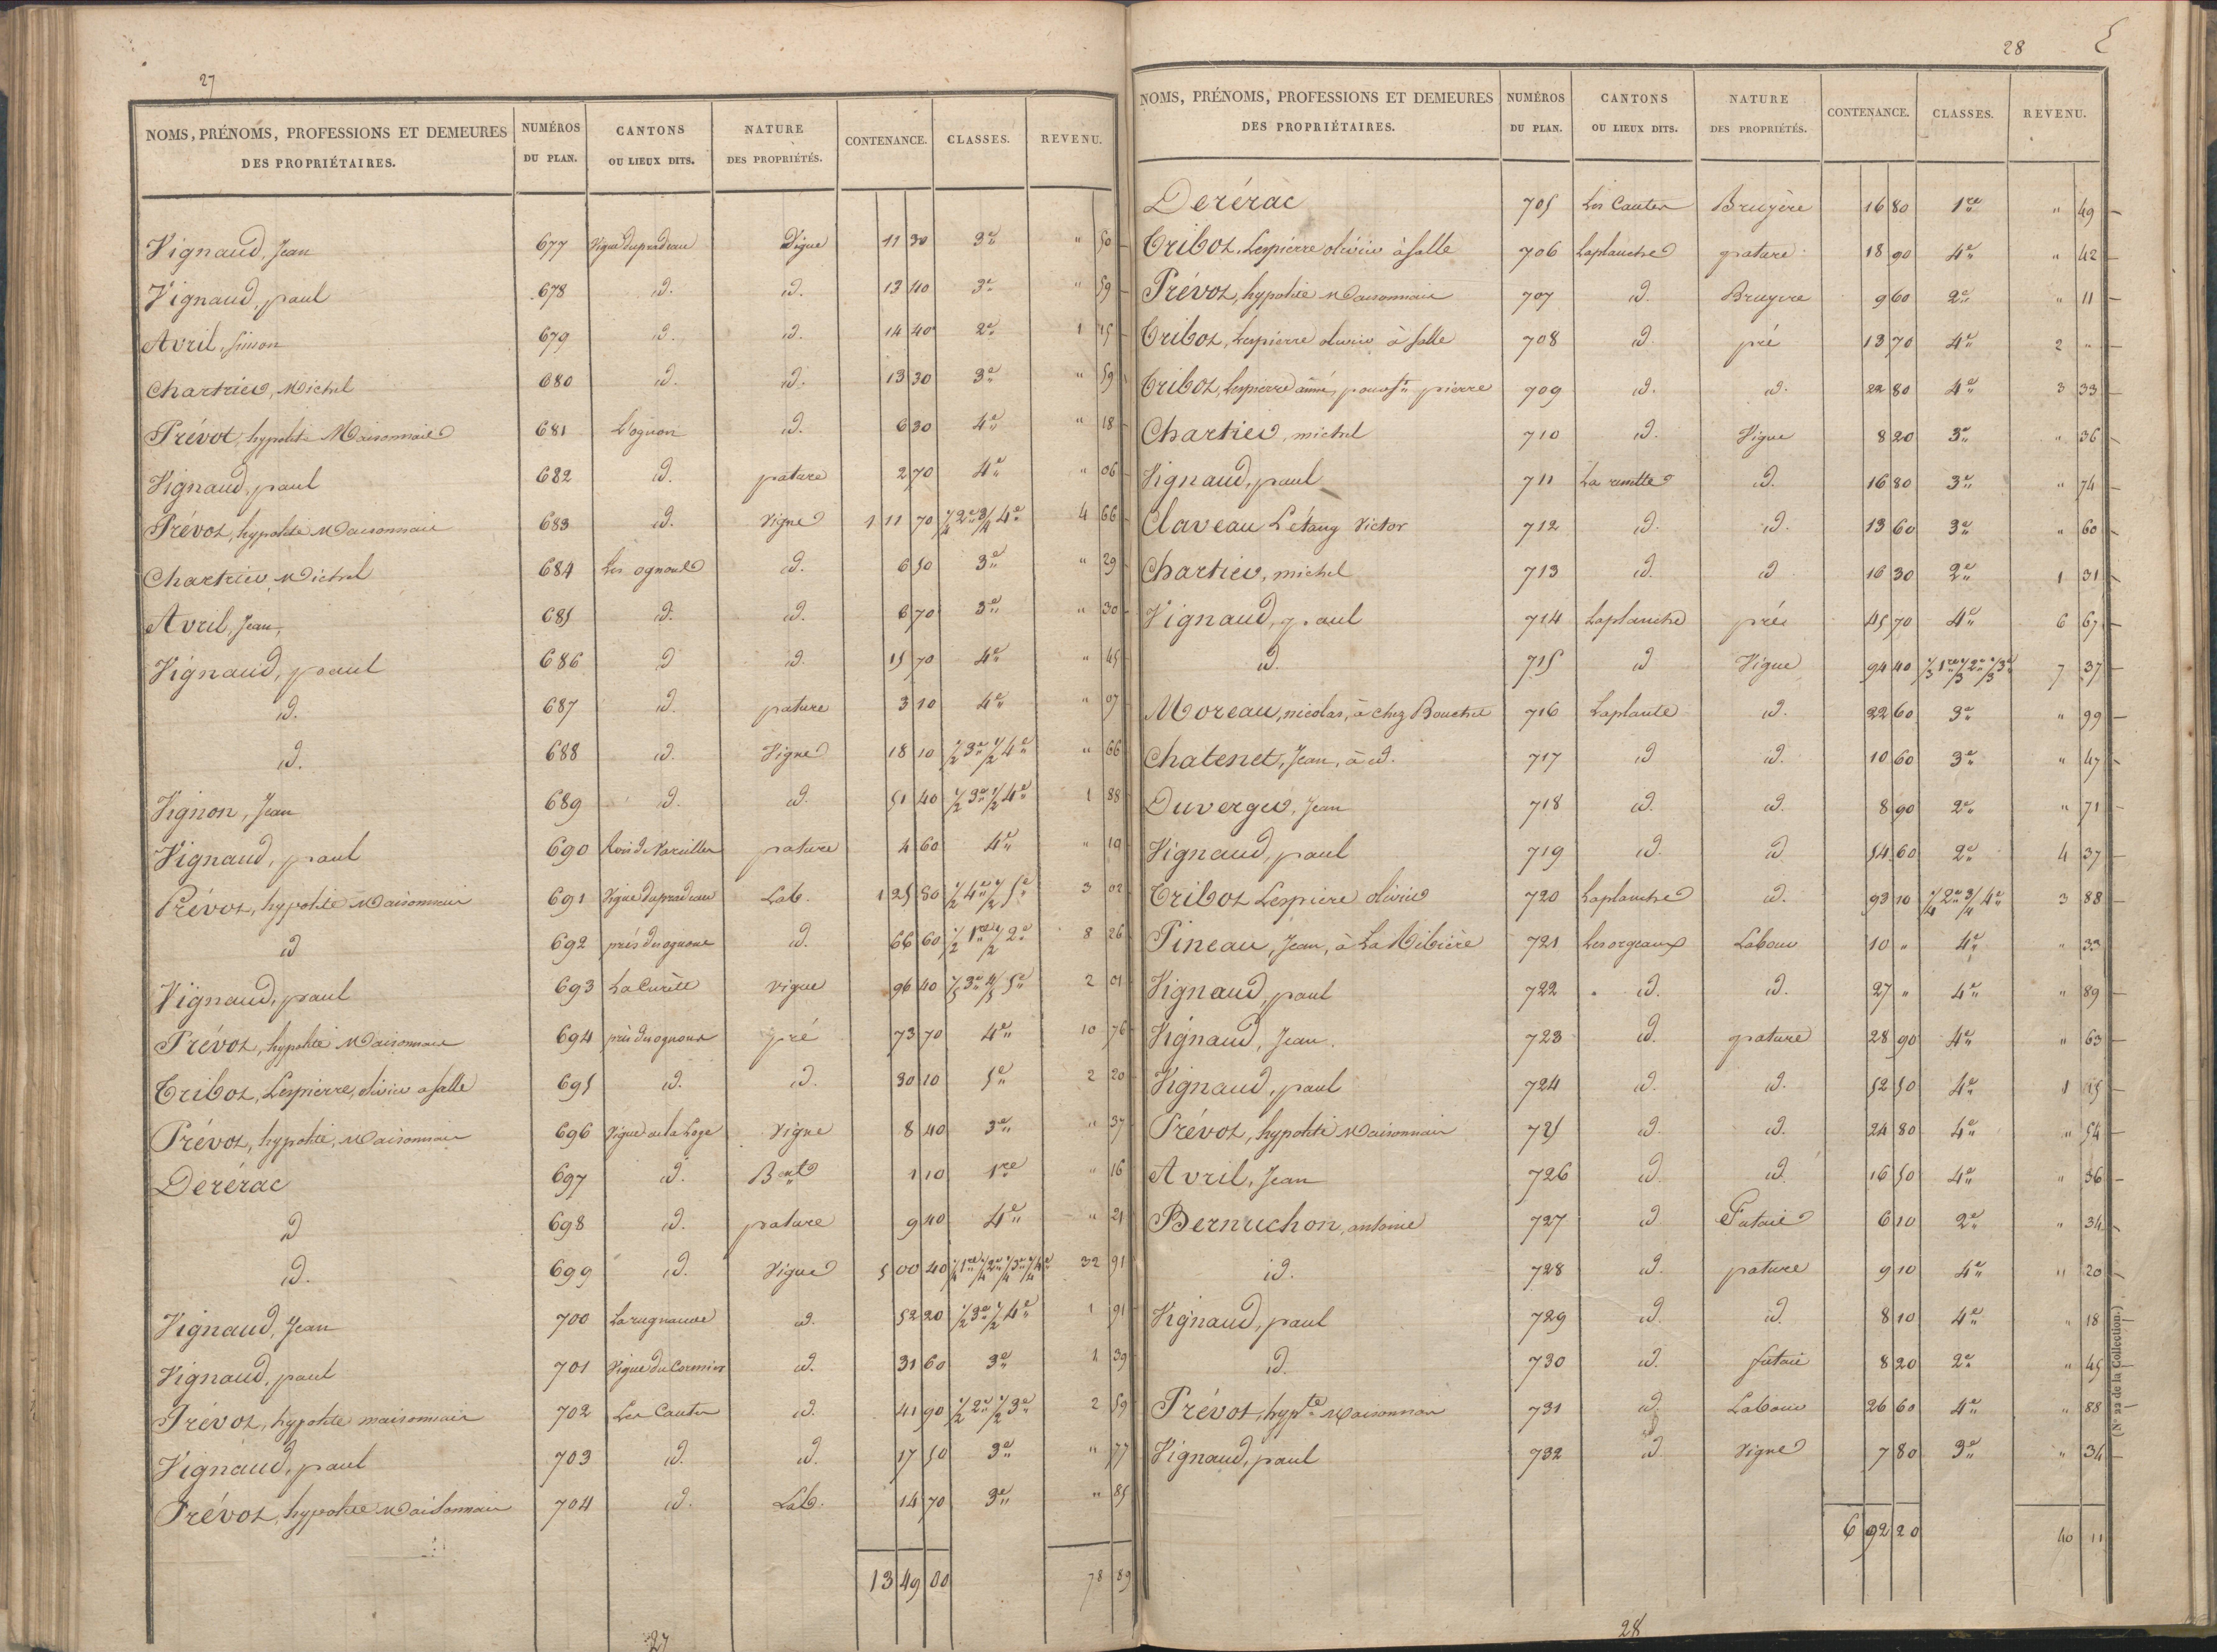 27
NOMS, PRÉNOMS, PROFESSIONS ET DEMEURES DES PROPRIÉTAIRES. NUMÉROS DU PLAN. CANTONS OU LIEUX DITS. NATURE DES PROPRIÉTÉS. CONTENANCE. CLASSES. REVENU.
Vignaud, Jean 677 Vigne dupradeau Vigne 11 30 3e " 50
Vignaud, paul 678 id. id. 13 40 3e " 59
Avril, Simon 679 id. id. 14 40 2e 1 15
Chartrier, Michel 680 id. id. 13 30 3e " 59
Prévot, hypolite Maisonnais 681 L'ognon id. 6 30 4e " 18
Vignaud, paul 682 id. pature 2 70 4e " 06
Prévot, hypolite Maisonnais 683 id. Vigne 1 11 70 1/4 2e 3/4 4e 4 66
Chartrier, Michel 684 Les ognons id. 6 50 3e " 29
Avril, Jean, 685 id. id. 6 70 3e " 30
Vignaud, paul 686 id id. 15 70 4e " 45
id. 687 id. pature 3 10 4e " 07
id. 688 id. Vigne 18 10 1/2 3e 1/2 4e " 66
Vignon, Jean 689 id. id. 51 40 1/2 3e 1/2 4e 1 88
Vignaud, paul 690 pature 4 60 4e " 10
Prévot, hypolite Maisonnais 691 Vigne dupradeau Lab. 1 25 80 1/2 4e 1/2 5e 3 02
id 692 prés des ognons id. 66 60 1/2 1re 1/2 2e 8 26
Vignaud, paul 693 La Curète vigne 96 40 1/5 3e 4/5 5e 2 01
Prévot, hypolite Maisonnais 694 prés des ognons pré 73 70 4e 10 76
Tribot, Lespierre, olivier a Salle 695 id. id. 30 10 5e 2 20
Prévot, hypolite, Maisonnais 696 Vigne de la Loge Vigne 8 40 3e " 37
Derérac 697 id. Bent 1 10 1re " 16
id 698 id. pature 9 40 4e " 21
id. 699 id. Vigne 5 00 40 1/4 1re 1/4 2e 1/4 3e 1/4 4e 32 91
Vignaud, Jean 700 Larugnaude id. 52 20 1/2 3e 1/2 4e 1 91
Vignaud, paul 701 Vigne du Cormier id. 31 60 3e 1 39
Prévot, hypolite maisonnais 702 Les Cantes id. 41 90 1/2 2e 1/2 3e 2 59
Vignaud, paul 703 id. id. 17 50 3e " 77
Prévot, hypolite Maisonnais 704 id. Lab. 14 70 3e " 85
13 49 00 78 89
27
28
NOMS, PRÉNOMS, PROFESSIONS ET DEMEURES DES PROPRIÉTAIRES. NUMÉROS DU PLAN. CANTONS OU LIEUX DITS. NATURE DES PROPRIÉTÉS. CONTENANCE. CLASSES. REVENU.
Derérac 705 Les Cantes Bruyère 16 80 1re " 49
Tribot, Lespierre olivier à Salle 706 Laplanche pature 18 90 4e " 42
Prévot, hypolite Maisonnais 707 id. Bruyere 9 60 2e " 11
Tribot, Lespierre olivier à Salle 708 id. pré 13 70 4e 2 "
Tribot, Lespierre ainé, pierre 709 id. id. 22 80 4e 3 33
Chartier, michel 710 id. Vigne 8 20 3e " 36
Vignaud, paul 711 id. 16 80 3e " 74
Claveau L'étang Victor 712 id. id. 13 60 3e " 60
Chartier, michel 713 id. id 16 30 2e 1 31
Vignaud, paul 714 Laplanche pré 45 70 4e 6 67
id. 715 id Vigne 94 40 1/3 1re 1/3 2e 1/3 3e 7 37
Moreau, nicolas, à chez Bouchet 716 Laplante id. 22 60 3e " 99
Chatenet, Jean, à id. 717 id id. 10 60 3e " 47
Duverger, Jean 718 id. id. 8 90 2e " 71
Vignaud, paul 719 id. id 54 60 2e 4 37
Tribot Lespiere olivier 720 Laplanche id. 93 10 1/4 2e 3/4 4e 3 88
Pineau, Jean, à La Ribière 721 Les orgeaux Labour 10 " 4e " 33
Vignaud, paul 722 id. id. 27 " 4e " 89
Vignaud, Jean. 723 id. pature 28 90 4e " 63
Vignaud, paul 724 id. id. 52 50 4e 1 15
Prévot, hypolite Maisonnais 725 id. id. 24 80 4e " 54
Avril, Jean 726 id. id. 16 50 4e " 36
Bernuchon, antoine 727 id Futaie 6 10 2e " 34
id. 728 id pature 9 10 4e " 20
Vignaud, paul 729 id. id. 8 10 4e " 18
id. 730 id. futaie 8 20 2e " 45
Prévot, hypte Maisonnais 731 id. Labour 26 60 4e " 88
Vignaud, paul 732 id Vigne 7 80 3e " 34
6 92 20 40 11
28
(N° 22 de la Collection.)